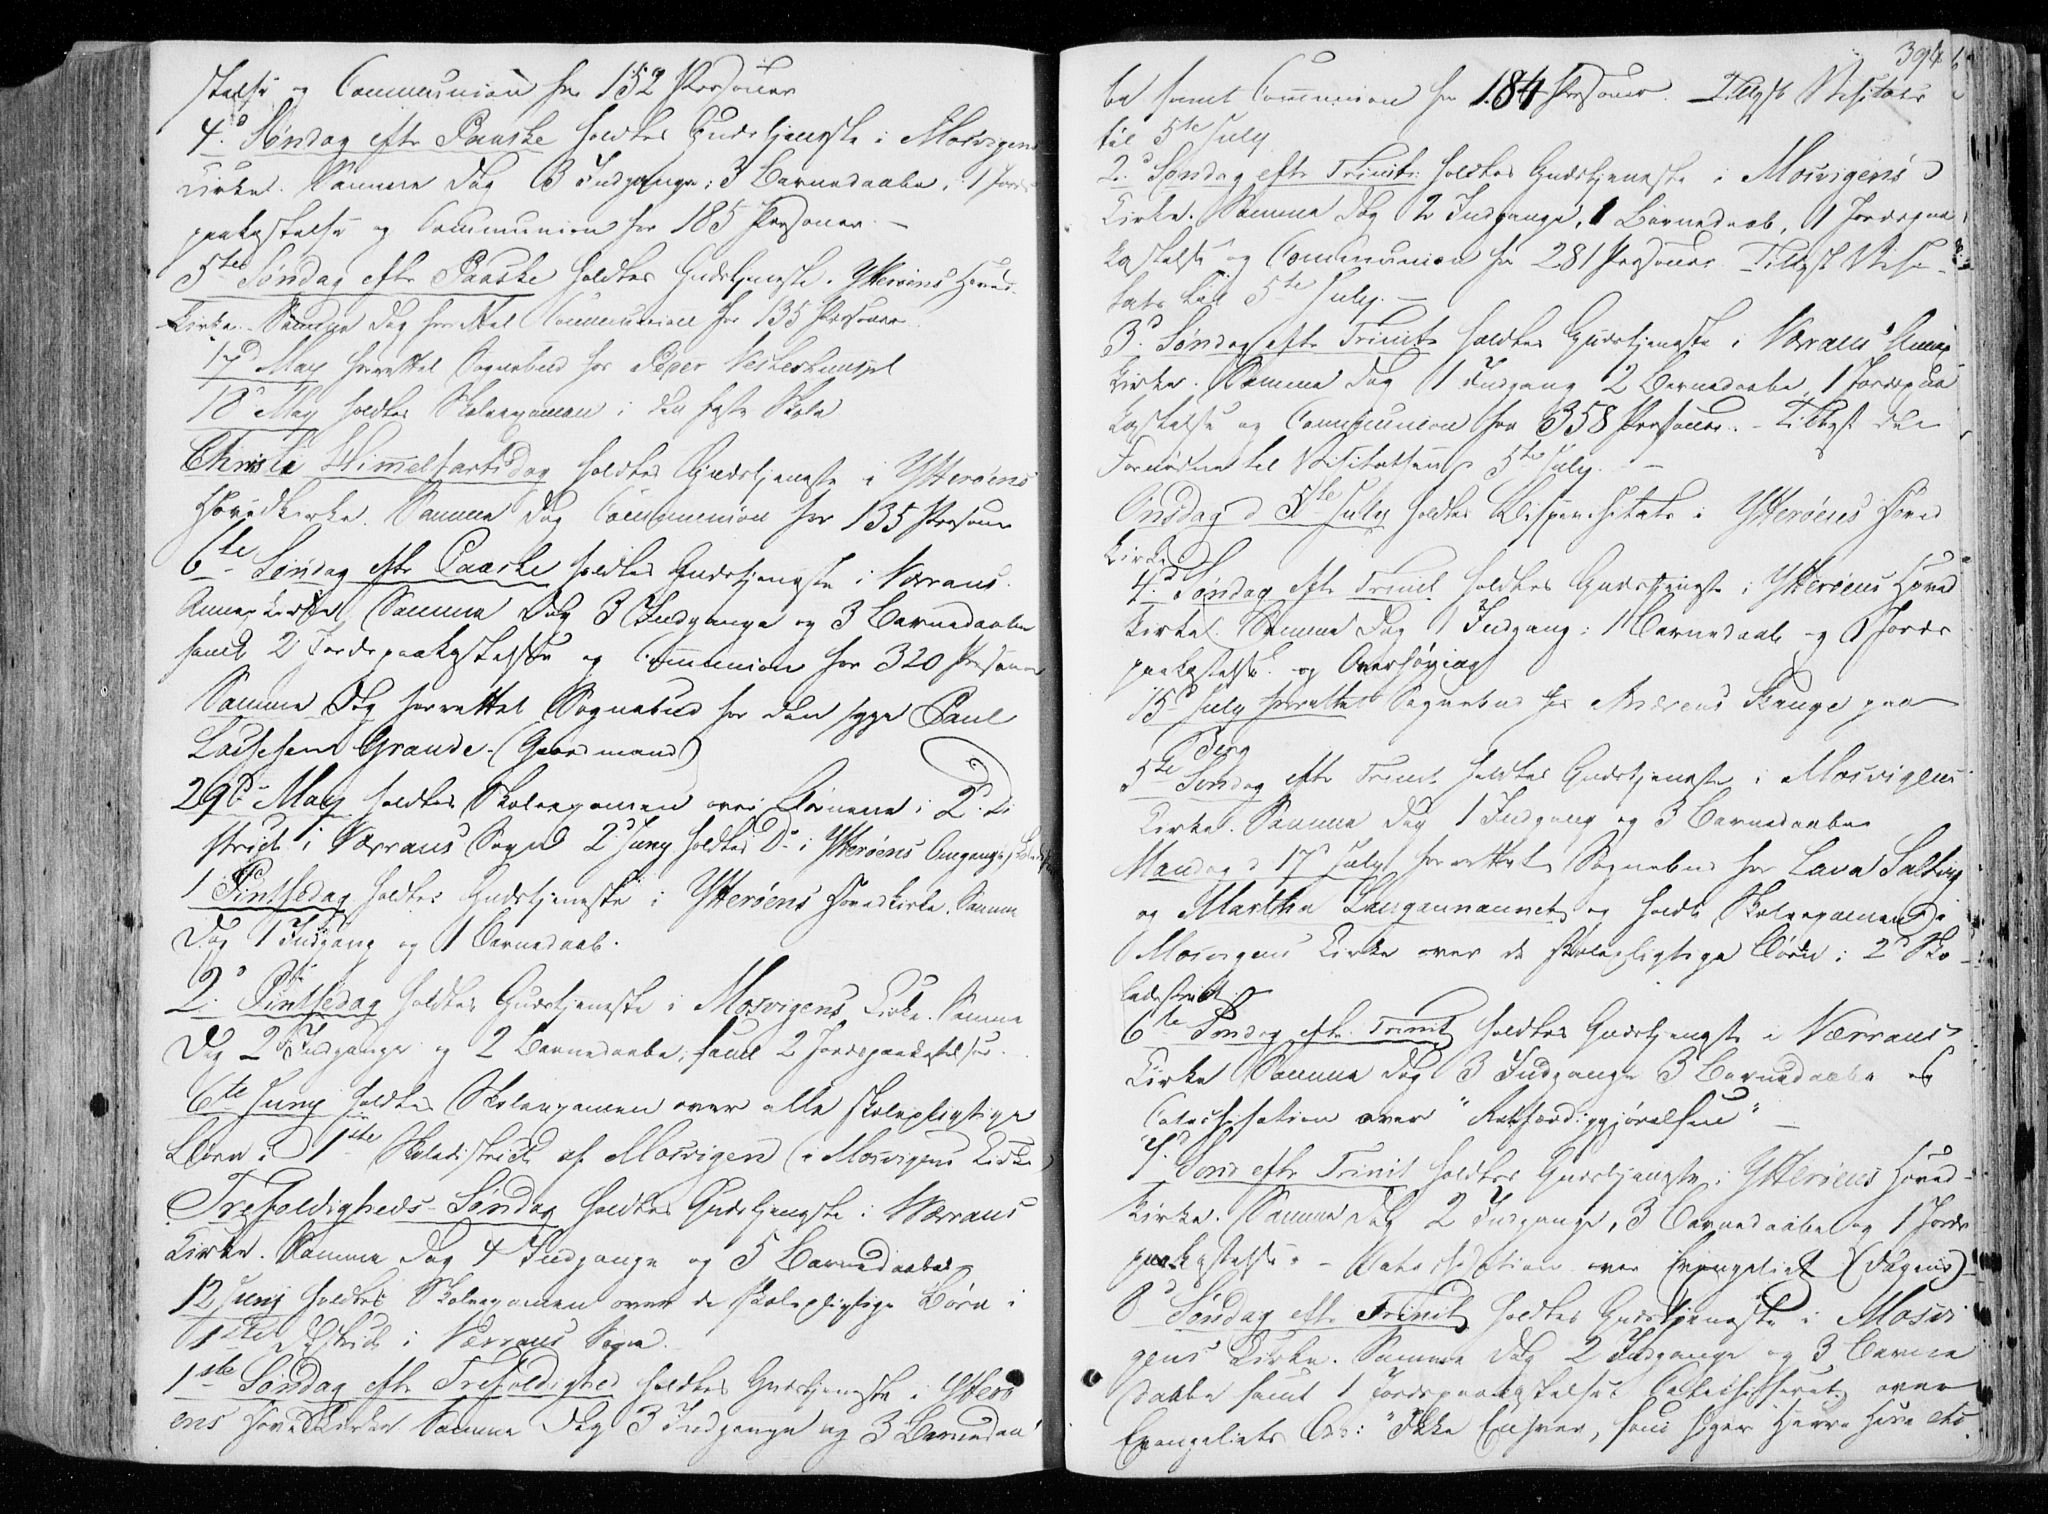 stelse og Communion for 152 Personer
4.d Søndag efter Paaske holdtes Gudstjeneste i Mosvigens
Kirke. Samme Dag 3 Indgange, 3 Barnedaabe, 1 Jords-
paakastelse og Communion for 185 Personer. –
5te Søndag efter Paaske holdtes Gudstjeneste i Ytterøens Hoved-
kirke. Samme Dag forrettet Communion for 135 Personer.
17d May forrettet Sognebud for Peder
18d May holdtes Skoleexamen i den faste Skole
Christi Himmelfartsdag holdtes Gudstjeneste i Ytterøens
Hovedkirke. Samme Dag Communion for 135 Personer
6te Søndag efter Paaske holdtes Gudstjeneste i Værrans
Annexkirke, Samme Dag 3 Indgange og 3 Barnedaabe
samt 2 Jordspaakastelse og Communion for 320 Personer
Samme Dag forrettet Sognebud for den syge Paul
Grande. (Gaardmand)
29d May holdtes Skoleexamen over Børnene i 2d Di-
strict i Værrans Sogn 2d Juny holdtes Do i Ytterøens Omgangsskole
1 Pintsedag holdtes Gudstjeneste i Ytterøens Hovedkirke. Samme
Dag 1 Indgang og 1 Barnedaab.
2d Pintsedag holdtes Gudstjeneste i Mosvigens Kirke. Samme
Dag 2 Indgange og 2 Barnedaabe, samt 2 Jordspaakastelser.
6te Juny holdtes Skoleexamen over alle skolepligtige
Børn i 1ste Skoledistrict af Mosvigen (i Mosvigens Kirke)
Trefoldigheds-Søndag holdtes Gudstjeneste i Værrans
Kirke. Samme Dag 4 Indgange og 5 Barnedaabe
12 Juny holdtes Skoleexamen over de skolepligtige Børn i
1ste District i Værrans Sogn.
1ste Søndag efter Trefoldighed holdtes Gudstjeneste i Ytterø-
ens Hovedkirke Samme Dag 3 Indgange og 3 Barnedaa-
394
be samt Communion for 184 Personer. Tillyst Visitats
til 5te July
2.d Søndag efter Trinit: holdtes Gudstjeneste i Mosvigens
Kirke. Samme Dag 2 Indgange, 1 Barnedaab, 1 Jordspaa-
kastelse og Communion for 281 Personer Tillyst Visi-
tats til 5te July. –
3d Søndag efter Trinit: holdtes Gudstjeneste i Værrans Annex-
kirke. Samme Dag 1 Indgang 2 Barnedaabe, 1 Jordspaa-
kastelse og Communion for 358 Personer. – Tillyst det
Fornødne til Visitatsen d 5te July. –
Onsdag d 5te July holdtes Bispevisitats i Ytterøens Hoved
Kirke
4.d Søndag efter Trinit holdtes Gudstjeneste i Ytterøens Hoved
kirke. Samme Dag 1 Indgang, 1 Barnedaab og Jords-
paakastelse og Overhøring
15d July forrettet Sognebud for Andreas Stange paa
Berg
5te Søndag efter Trinit holdtes Gudstjeneste i Mosvigens
Kirke. Samme Dag 1 Indgang og 3 Barnedaabe
Mandag d 17d July forrettet Sognebud for Lava Saltvig
og Martha og holdt Skoleexamen i
Mosvigens Kirke over de skolepligtige Børn i 2d Sko-
ledistrict
6te Søndag efter Trinit holdtes Gudstjeneste i Værrans
Kirke Samme Dag 3 Indgange 3 Barnedaabe og
Catechisation over "Retfærdiggjørelsen" –
7.d Sønd efter Trinit holdtes Gudstjeneste i Ytterøens Hoved-
kirke. Samme Dag 2 Indgange, 3 Barnedaabe og 1 Jords-
paakastelse. – Catechisation over Evangeliet (Dagens) –
8d Søndag efter Trinit holdtes Gudstjeneste i Mosvi-
gens Kirke. Samme Dag 2 Indgange og 3 Barne
daabe samt 1 Jordspaakastelse Catechiseret over
Evangeliets Ord: "Ikke Enhver, som siger Herre Herre etc.